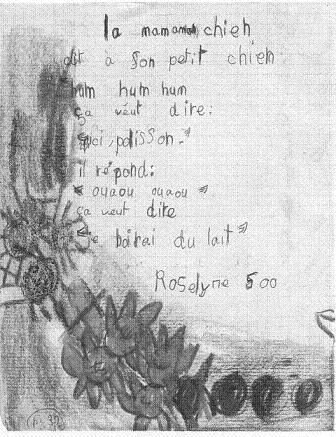 la maman chien
dit à son petit chien
"hum hum hum
ça veut dire:
ici, polisson."
il répond:
" ouaou ouaou "
ça veut dire
"je boirai du lait"
Roselyne 5 00